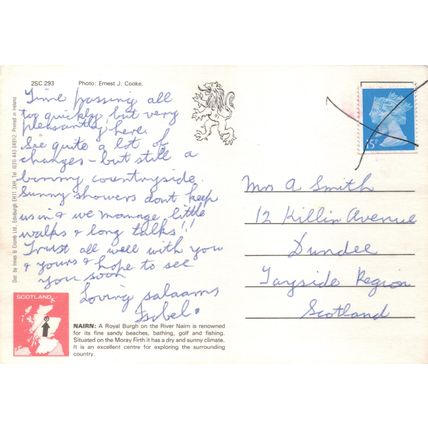 2SC 293
Photo: Ernest J. Cooke.
Time passing all
too quickly but very
pleasantly here.
See quite a lot of
changes - but still a
bonny countryside.
Sunny showers dont keep
us in & we manage little
walks & long talks!!
Trust all well with you
& yours & hope to see
you soon.
Loving salaams
Isobel.
15
Mrs A Smith
12 Killin Avenue
Dundee
Tayside Region
Scotland
Printed in Ireland
SCOTLAND
NAIRN: A Royal Burgh on the River Nairn is renowned
for its fine sandy beaches, bathing, golf and fishing.
Situated on the Moray Firth it has a dry and sunny climate.
It is an excellent centre for exploring the surrounding
country.